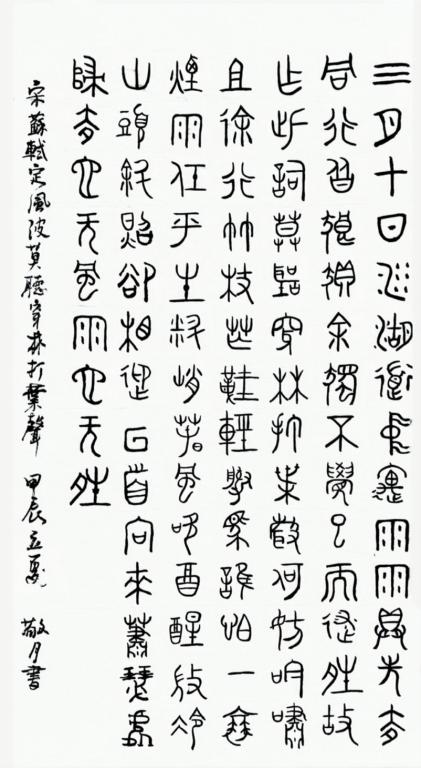 三月七日沙湖道中遇雨雨具先去
同行皆狼狽余獨不覺已而遂晴故
作此詞莫聽穿林打葉聲何妨吟嘯
且徐行竹杖芒鞋輕勝馬誰怕一蓑
煙雨任平生料峭春風吹酒醒微冷
山頭斜照卻相迎回首向來蕭瑟處
歸去也无風雨也无晴
宋蘇軾定風波莫聽穿林打葉聲 甲辰立夏 敬月書